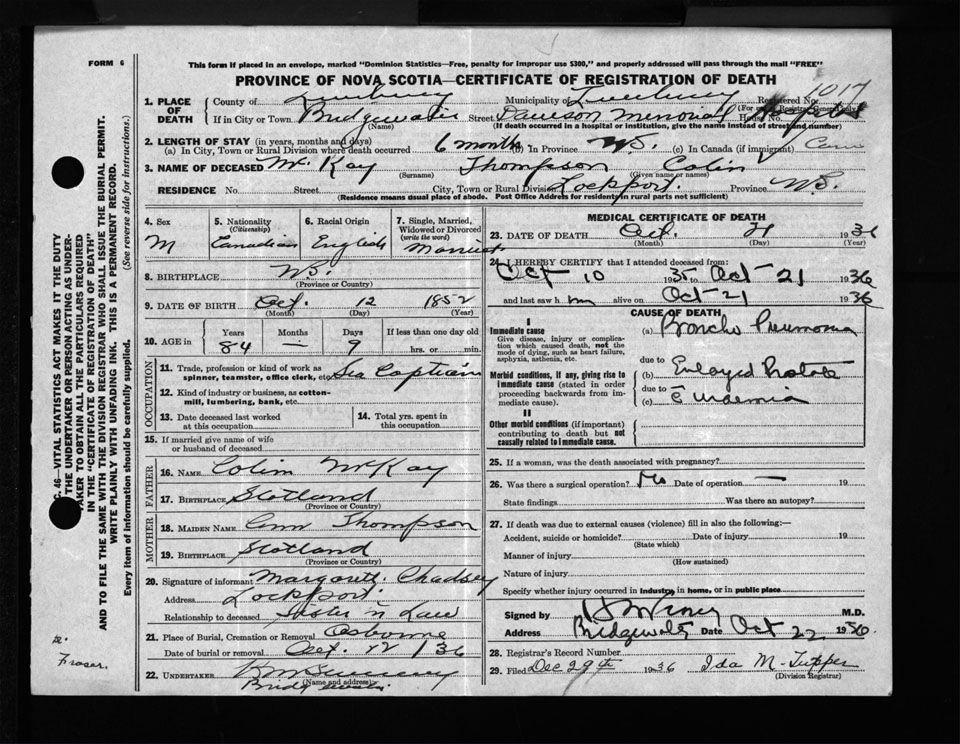 FORM 6
This form if placed in an envelope, marked "Dominion Statistics—Free, penalty for improper use $300," and properly addressed will pass through the mail "FREE"
PROVINCE OF NOVA SCOTIA—CERTIFICATE OF REGISTRATION OF DEATH
1017
1. PLACE OF DEATH
County of Lunenburg Municipality of Lunenburg Registered No.
(For use of Registrar General only)
If in City or Town Bridgewater Street Dawson Memorial Hospital House No.
(Name) (If death occurred in a hospital or institution, give the name instead of street and number)
2. LENGTH OF STAY (in years, months and days)
(a) In City, Town or Rural Division where death occurred 6 months (b) In Province N.S. (c) In Canada (if immigrant)
3. NAME OF DECEASED McKay Thompson Colin
(Surname) (Given name or names)
RESIDENCE No. Street City, Town or Rural Division Lockport. Province N.S.
(Residence means usual place of abode. Post Office Address for residents in rural parts not sufficient)
C. 46—VITAL STATISTICS ACT MAKES IT THE DUTY
THE UNDERTAKER OR PERSON ACTING AS UNDER-
TAKER TO OBTAIN ALL THE PARTICULARS REQUIRED
IN THE "CERTIFICATE OF REGISTRATION OF DEATH"
AND TO FILE THE SAME WITH THE DIVISION REGISTRAR WHO SHALL ISSUE THE BURIAL PERMIT.
WRITE PLAINLY WITH UNFADING INK. THIS IS A PERMANENT RECORD.
Every item of Information should be carefully supplied. (See reverse side for instructions.)
Fraser.
4. Sex
M
5. Nationality
(Citizenship)
Canadian
6. Racial Origin
English
7. Single, Married, Widowed or Divorced
(write the word)
Married
8. BIRTHPLACE N.S.
(Province or Country)
9. DATE OF BIRTH Oct. 12 1852
(Month) (Day) (Year)
10. AGE in
Years Months Days If less than one day old
84 — 9 hrs. or min.
OCCUPATION
11. Trade, profession or kind of work as
spinner, teamster, office clerk, etc. Sea Captain
12. Kind of industry or business, as cotton-
mill, lumbering, bank, etc.
13. Date deceased last worked
at this occupation
14. Total yrs. spent in
this occupation
15. If married give name of wife
or husband of deceased
FATHER
16. NAME Colin McKay
17. BIRTHPLACE Scotland
(Province or Country)
MOTHER
18. MAIDEN NAME Ann Thompson
19. BIRTHPLACE Scotland
(Province or Country)
20. Signature of informant Margaret Chadsey
Address Lockport.
Relationship to deceased Sister n Law
21. Place of Burial, Cremation or Removal Osborne
Date of burial or removal Oct. 12 /36
22. UNDERTAKER
(Name and address)
Bridgewater.
MEDICAL CERTIFICATE OF DEATH
23. DATE OF DEATH Oct. 21 1936
(Month) (Day) (Year)
24. I HEREBY CERTIFY that I attended deceased from:
Oct 10 1935 to Oct 21 1936
and last saw him alive on Oct 21 1936
CAUSE OF DEATH
I
Immediate cause
Give disease, injury or complica-
tion which caused death, not the
mode of dying, such as heart failure,
asphyxia, asthenia, etc.
(a) Broncho Pneumonia
due to
Morbid conditions, if any, giving rise to
immediate cause (stated in order
proceeding backwards from im-
mediate cause).
(b) Enlarged Prostate
due to
(c) c̄ uraemia
II
Other morbid conditions (if important)
contributing to death but not
causally related to immediate cause.
25. If a woman, was the death associated with pregnancy?
26. Was there a surgical operation? No Date of operation — 19
State findings Was there an autopsy?
27. If death was due to external causes (violence) fill in also the following:—
Accident, suicide or homicide? Date of injury 19
(State which)
Manner of injury
(How sustained)
Nature of injury
Specify whether injury occurred in industry, in home, or in public place
Signed by M.D.
Address Bridgewater Date Oct 22 1936.
28. Registrar's Record Number
29. Filed Dec 29th 1936 Ida M. Tupper
(Division Registrar)